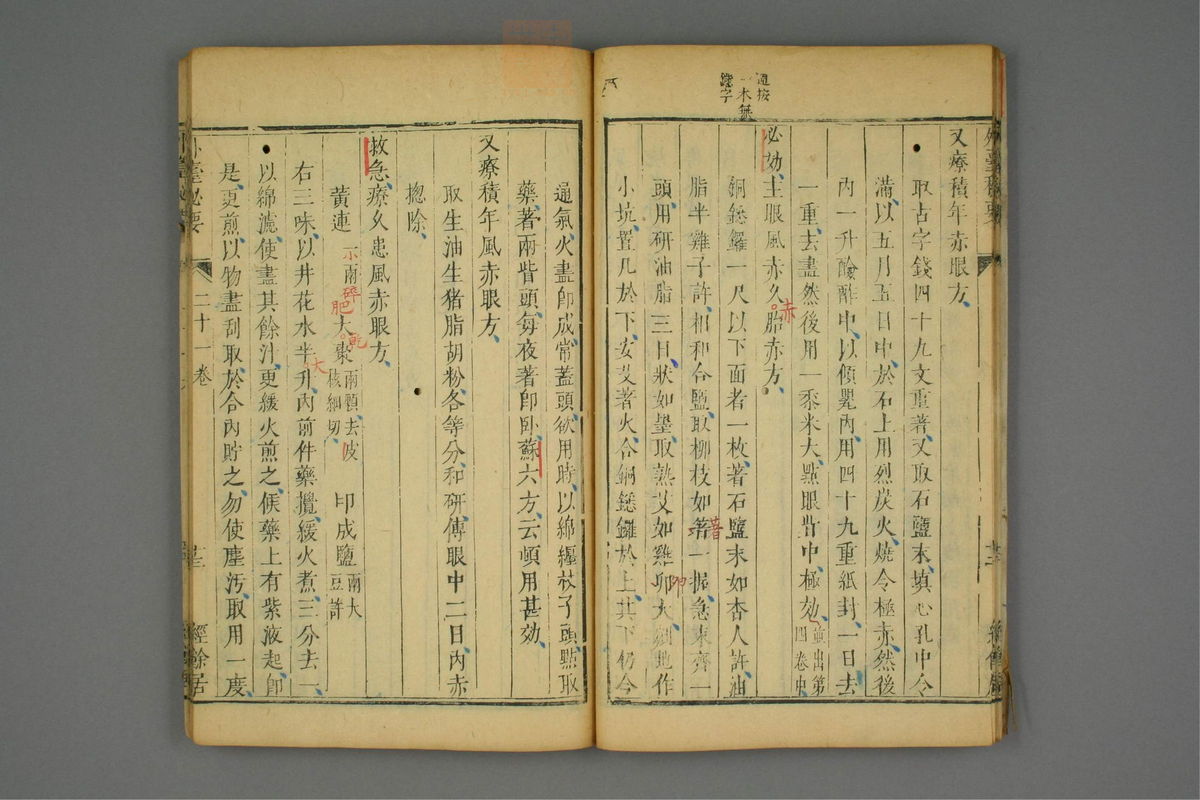 又療積年赤眼方
取古字錢四十九文重著又取石鹽末填心孔中令
滿以五月五日中於石上用烈炭火燒令極赤然後
內一升釅酢中以傾甖內用四十九重紙封一日去
一重去盡然後用一黍米大點眼眥中極効並出第四卷中
必効主眼風赤久胎赤方
赤
銅鎴鑼一尺以下面者一枚著石鹽末如杏人許油
脂半雞子許相和合鹽取柳枝如箸一握急束齊一
著
頭用研油脂三日狀如墨取熟艾如雞卵大地作
卵
小坑置凡於下安艾著火合銅鎴鑼於上其下仍令
通按
一本無
字
通氣火盡即成常蓋頭欲用時以綿纏杖子頭點取
藥著兩眥頭每夜著即臥蘇六方云頓用甚効
又療積年風赤眼方
取生油生豬脂胡粉各等分和研傅眼中二日內赤
揔除
救急療久患風赤眼方
黃連一兩碎 大棗一兩顆去皮核細切 印成鹽兩大豆許
肥
乾
右三味以井花水半升內前件藥攪緩火煮三分去一
大
以綿濾使盡其餘汁更緩火煎之候藥上有紫液起即
是更煎以物盡刮取於合內貯之勿使塵污取用一度
外臺必要
二十一卷
廿三
經餘居